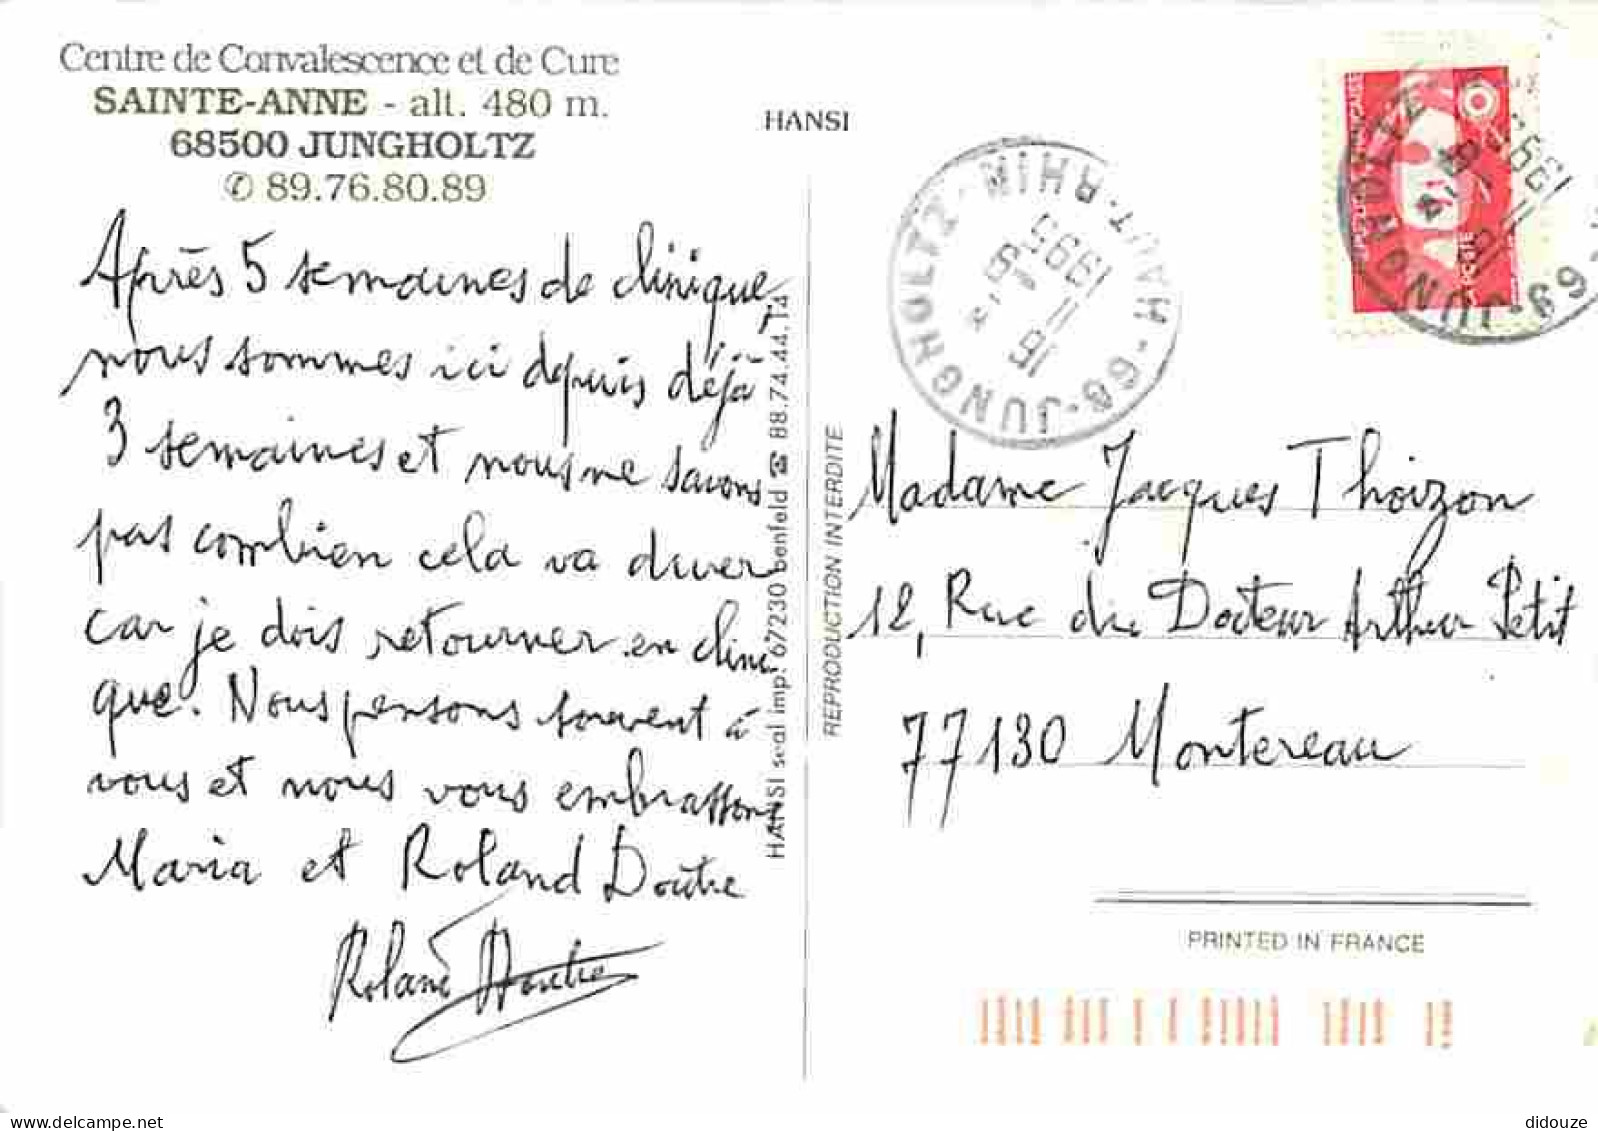 Centre de Convalescence et de Cure
SAINTE-ANNE - alt. 480 m.
68500 JUNGHOLTZ
✆ 89.76.80.89
HANSI
Après 5 semaines de clinique,
nous sommes ici depuis déjà
3 semaines et nous ne savons
pas combien cela va durer
car je dois retourner en clini
que. Nous pensons souvent à
vous et nous vous embrassons
Maria et Roland Doutre
Roland Doutre
HANSI seal imp. 67230 benfeld ☎ 88.74.44.14
REPRODUCTION INTERDITE
68-JUNGHOLTZ-HAUT-RHIN
1995
Madame Jacques Thoizon
12, Rue du Docteur Arthur Petit
77130 Montereau
PRINTED IN FRANCE
delcampe.net
didouze